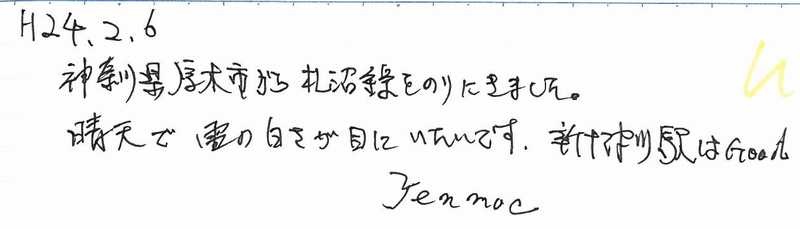 H24.2.6
神奈川県厚木市から札沼線をのりにきました。
晴天で雪の白さが目にいたいです。新十津川駅はGood
Jennoc